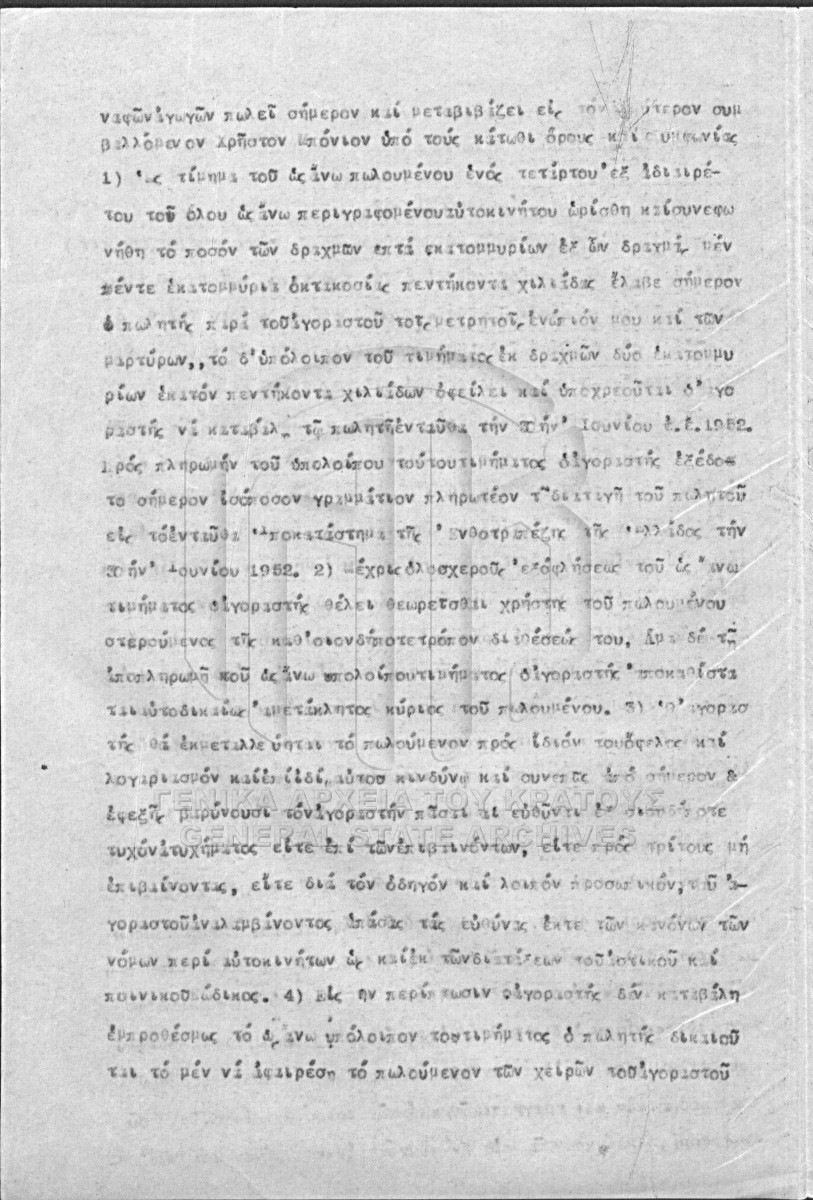 ναφῶνἀγωγῶν πωλεῖ σήμερον καί μεταβιβάζει εἰς τόν δεύτερον συμ
βαλλόμενον Χρῆστον Μπόνιον ὑπό τούς κάτωθι ὅρους καί συμφωνίας
1) Ὡς τίμημα τοῦ ὡς ἄνω πωλουμένου ἑνός τετάρτου ἐξ ἀδιαιρέ-
του τοῦ ὅλου ὡς ἄνω περιγραφομένου αὐτοκινήτου ὡρίσθη καί συνεφω
νήθη τό ποσόν τῶν δραχμῶν ἑπτά ἑκατομμυρίων ἐξ ὧν δραχμάς μέν
πέντε ἑκατομμύρια ὀκτακοσίας πεντήκοντα χιλιάδας ἔλαβε σήμερον
ὁ πωλητής παρά τοῦ ἀγοραστοῦ τοῖς μετρητοῖς ἐνώπιόν μου καί τῶν
μαρτύρων,,τό δ'ὑπόλοιπον τοῦ τιμήματος ἐκ δραχμῶν δύο ἑκατομμυ
ρίων ἑκατόν πεντήκοντα χιλιάδων ὀφείλει καί ὑποχρεοῦται ὁ ἀγο
ραστής νά καταβάλῃ τῷ πωλητῇ ἐνταῦθα τήν 30ήν Ἰουνίου ἐ.ἔ.1952.
Πρός πληρωμήν τοῦ ὑπολοίπου τούτου τιμήματος ὁ ἀγοραστής ἐξέδο-
το σήμερον ἰσόποσον γραμμάτιον πληρωτέον τῇ διαταγῇ τοῦ πωλητοῦ
εἰς τό ἐνταῦθα Ὑποκατάστημα τῆς Ἐθν.Τραπέζης τῆς Ἑλλάδος τήν
30ήν Ἰουνίου 1952. 2) Μέχρις ὁλοσχεροῦς ἐξοφλήσεως τοῦ ὡς ἄνω
τιμήματος ὁ ἀγοραστής θέλει θεωρεῖσθαι χρήστης τοῦ πωλουμένου
στερούμενος τῆς καθ'οιονδήποτε τρόπον διαθέσεώς του, ἅμα δέ τῇ
ἀποπληρωμῇ τοῦ ὡς ἄνω ὑπολοίπου τιμήματος ὁ ἀγοραστής ἀποκαθίστα
ται αὐτοδικαίως ἀμετάκλητος κύριος τοῦ πωλουμένου. 3) Ὁ ἀγορασ
τής θά ἐκμεταλλεύηται τό πωλούμενον πρός ἴδιόν του ὄφελος καί
λογαριασμόν καί ἐπί ἰδίῳ αὐτοῦ κινδύνῳ καί συνεπῶς ἀπό σήμερον &
ἐφεξῆς βαρύνουσι τόν ἀγοραστήν πᾶσαι αἱ εὐθῦναι ἐξ οιουδήποτε
τυχόν ἀτυχήματος εἴτε ἐπί τῶν ἐπιβαινόντων, εἴτε πρός τρίτους μή
ἐπιβαίνοντας, εἴτε διά τόν ὁδηγόν καί λοιπόν προσωπικόν, τοῦ ἀ-
γοραστοῦ ἀναλαμβάνοντος ἁπάσας τάς εὐθύνας ἔκ τε τῶν κανόνων τῶν
νόμων περί αὐτοκινήτων ὡς καί ἐκ τῶν διατάξεων τοῦ ἀστικοῦ καί
ποινικοῦ κώδικος. 4) Εἰς ἥν περίπτωσιν ὁ ἀγοραστής δέν καταβάλῃ
ἐμπροθέσμως τό ὡς ἄνω ὑπόλοιπον τοῦ τιμήματος ὁ πωλητής δικαιοῦ
ται τό μέν νά ἀφαιρέσῃ τό πωλούμενον τῶν χειρῶν τοῦ ἀγοραστοῦ
ΓΕΝΙΚΑ ΑΡΧΕΙΑ ΤΟΥ ΚΡΑΤΟΥΣ
GENERAL STATE ARCHIVES